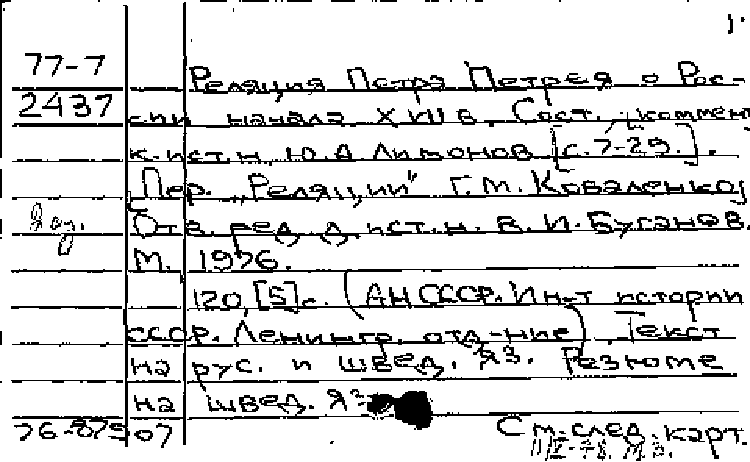 77-7
Реляция Петра Петрея о Рос-
2437
сии начала XVII в. Сост., коммент.
к.ист.н. Ю.А Лимонов [с.7-29.].
Пер. „Реляции" Г.М. Коваленко,
Отв. ред. д.ист.н. В.И. Буганов.
М. 1976.
120,[5]с. (АН СССР. Ин-т истории
СССР. Ленингр. отд-ние). Текст
на рус. и швед. яз. Резюме
на швед. яз
76-87907
См. след. карт.